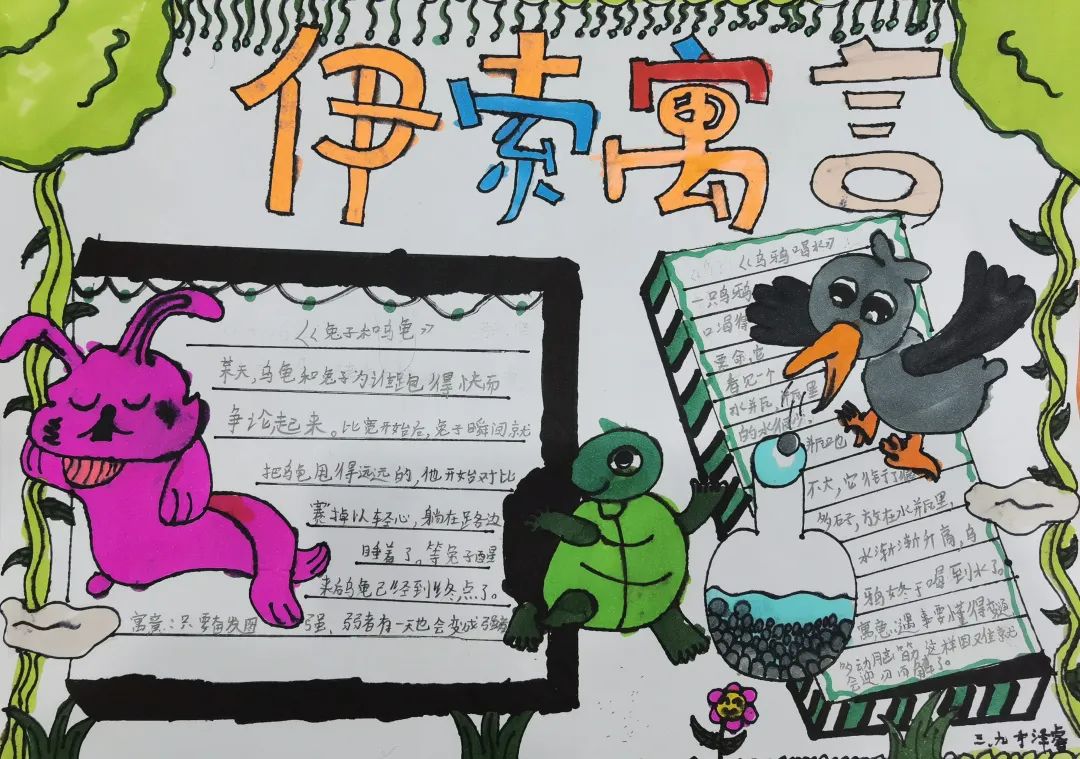 伊索寓言
《兔子和乌龟》
某天,乌龟和兔子为谁跑得快而
争论起来。比赛开始后,兔子瞬间就
把乌龟甩得远远的,他开始对比
赛掉以轻心,躺在路边
睡着了。等兔子醒
来后乌龟已经到终点了。
寓意:只要奋发图强、弱者有一天也会变成强
《乌鸦喝水》
一只乌鸦
口渴得
要命,它
看见一个
水瓶,瓶里
的水很少,
瓶口也
不大,它
多石子,放在水瓶里,
水渐渐升高,乌
鸦终于喝到水了。
寓意:遇事要懂得变通
多动脑筋,这样困难就
会迎刃而解了。
三.九